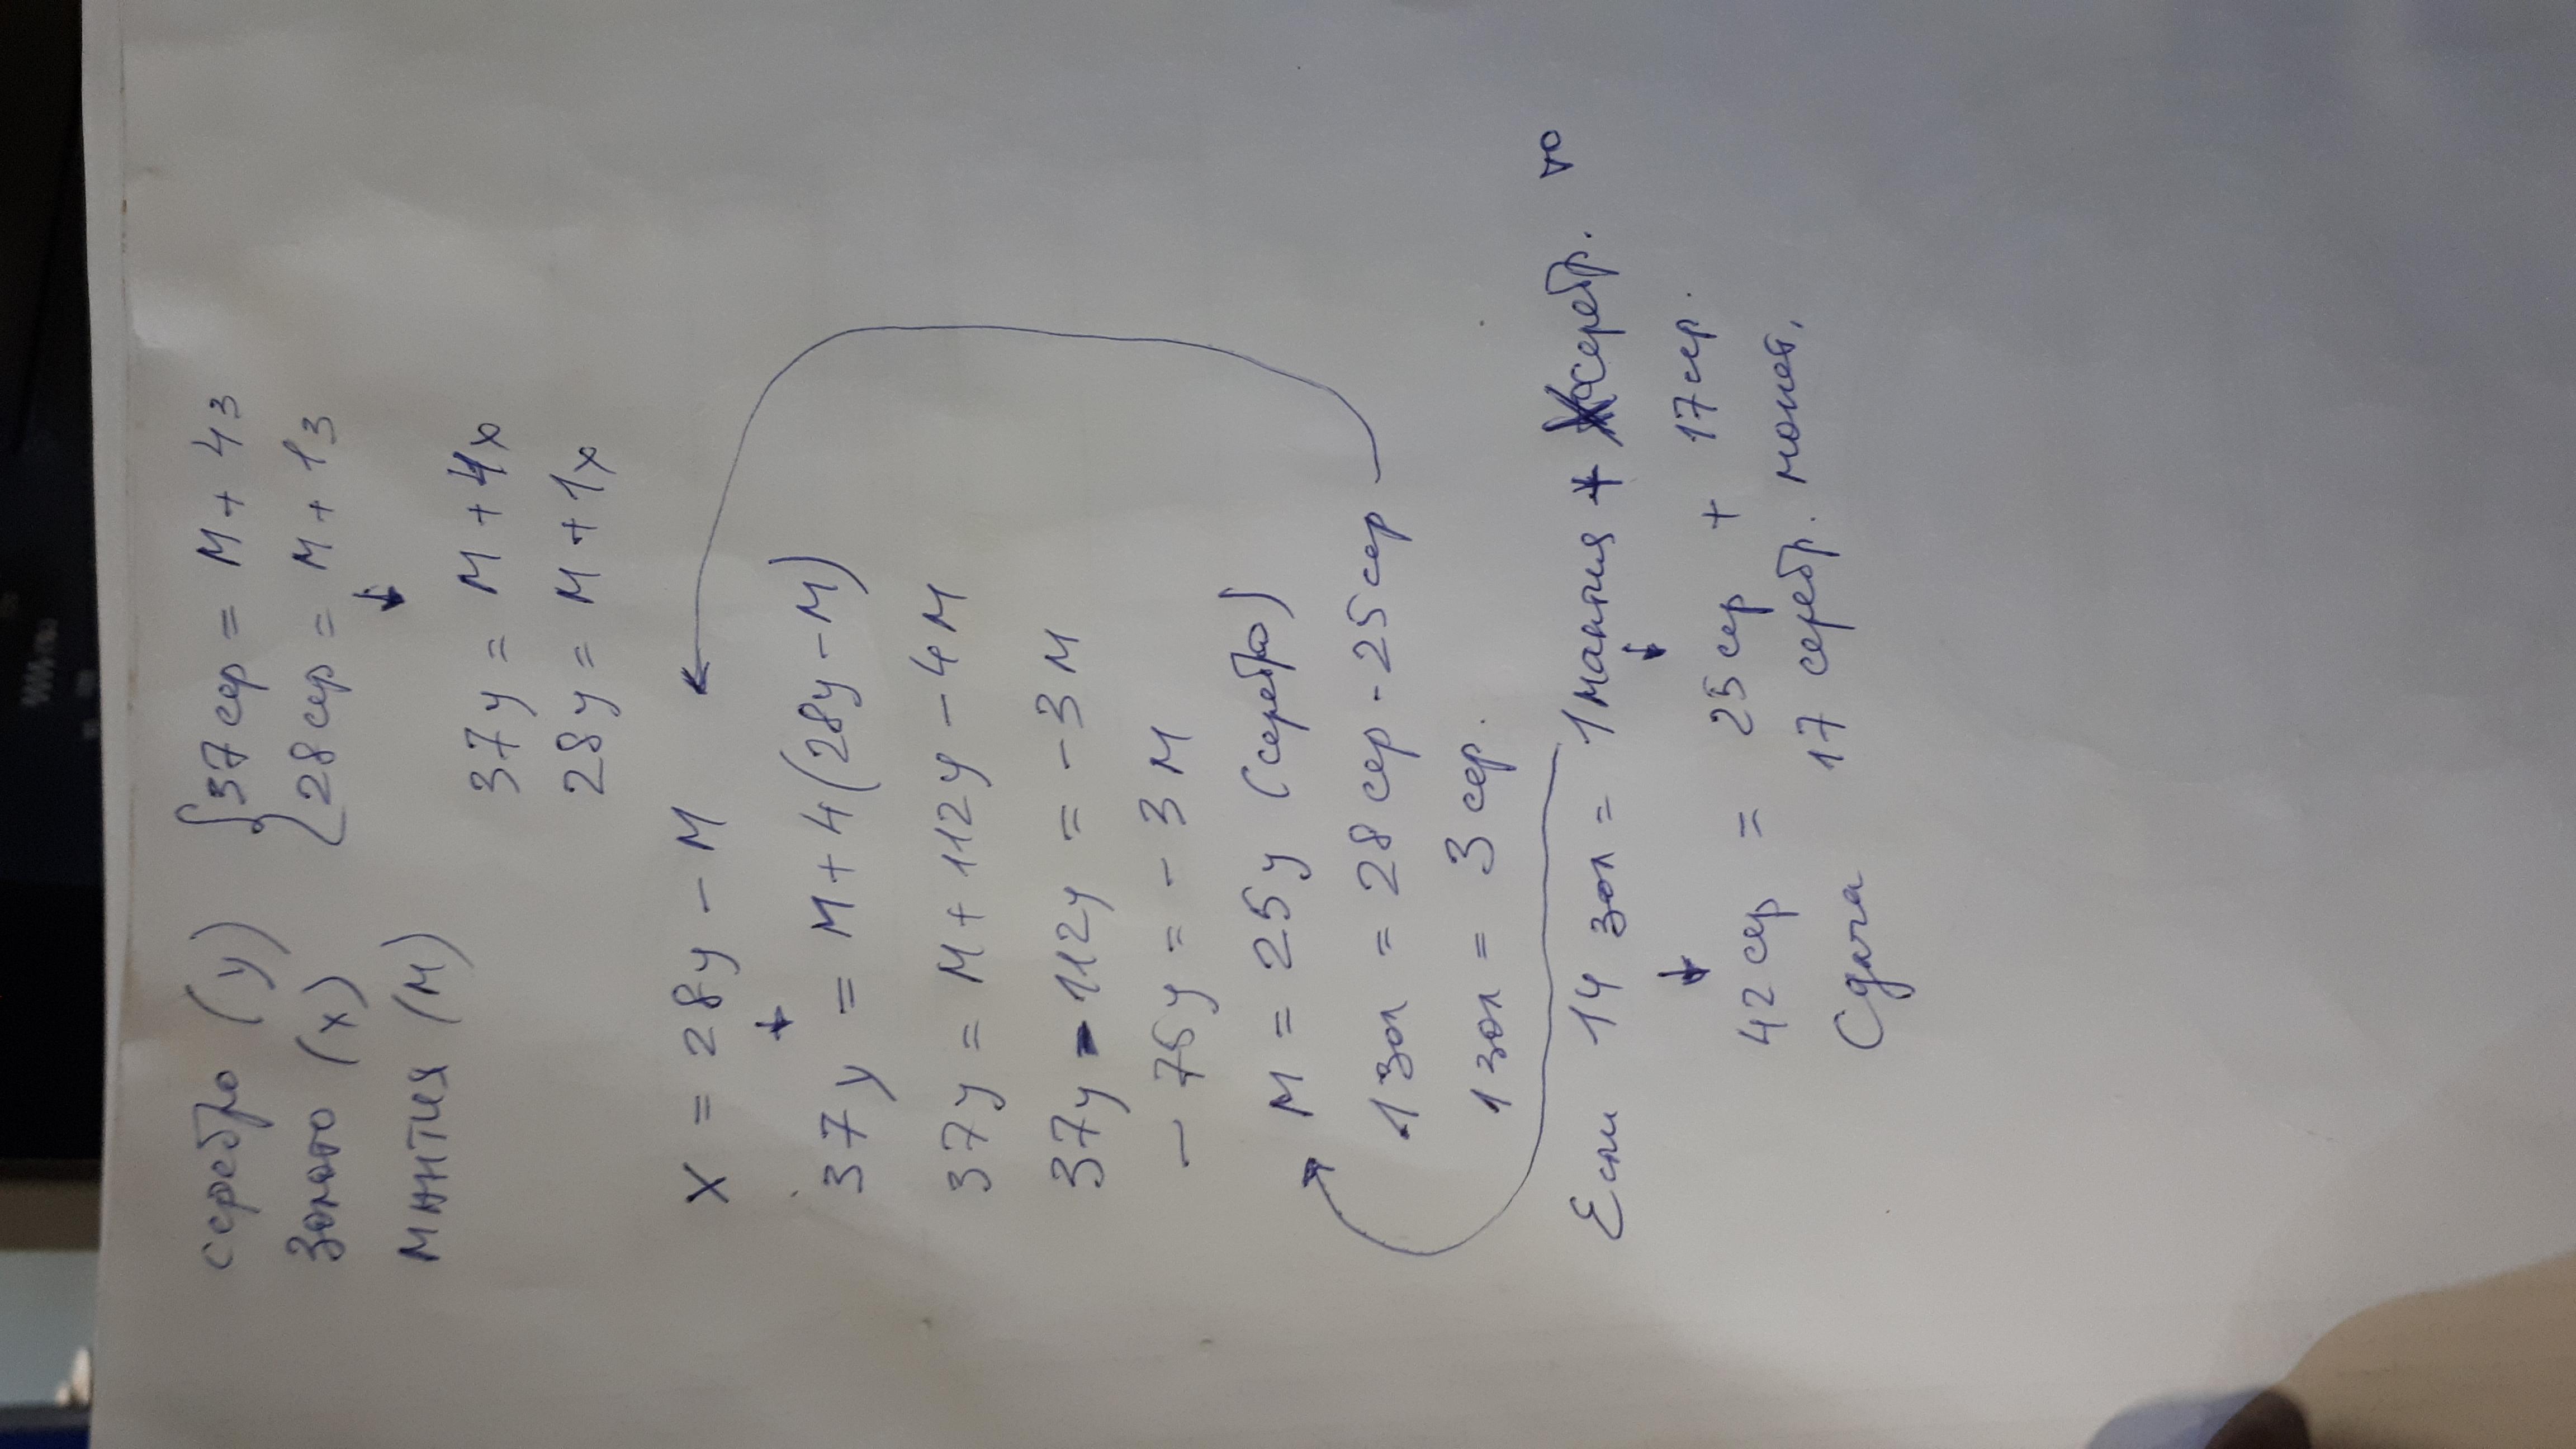 серебро (у)
золото (х)
мантия (м)
{37 сер = м + 4з
28 сер = м + 1з
37у = м + 4х
28у = м + 1х
х = 28у - м
37у = м + 4(28у - м)
37у = м + 112у - 4м
37у - 112у = -3м
- 75у = - 3м
м = 25у (серебро)
1 зол = 28 сер - 25 сер
1 зол = 3 сер.
Если 14 зол = 1 мантия + серебр. то
42 сер = 25 сер + 17 сер.
Сдача 17 серебр. монет.